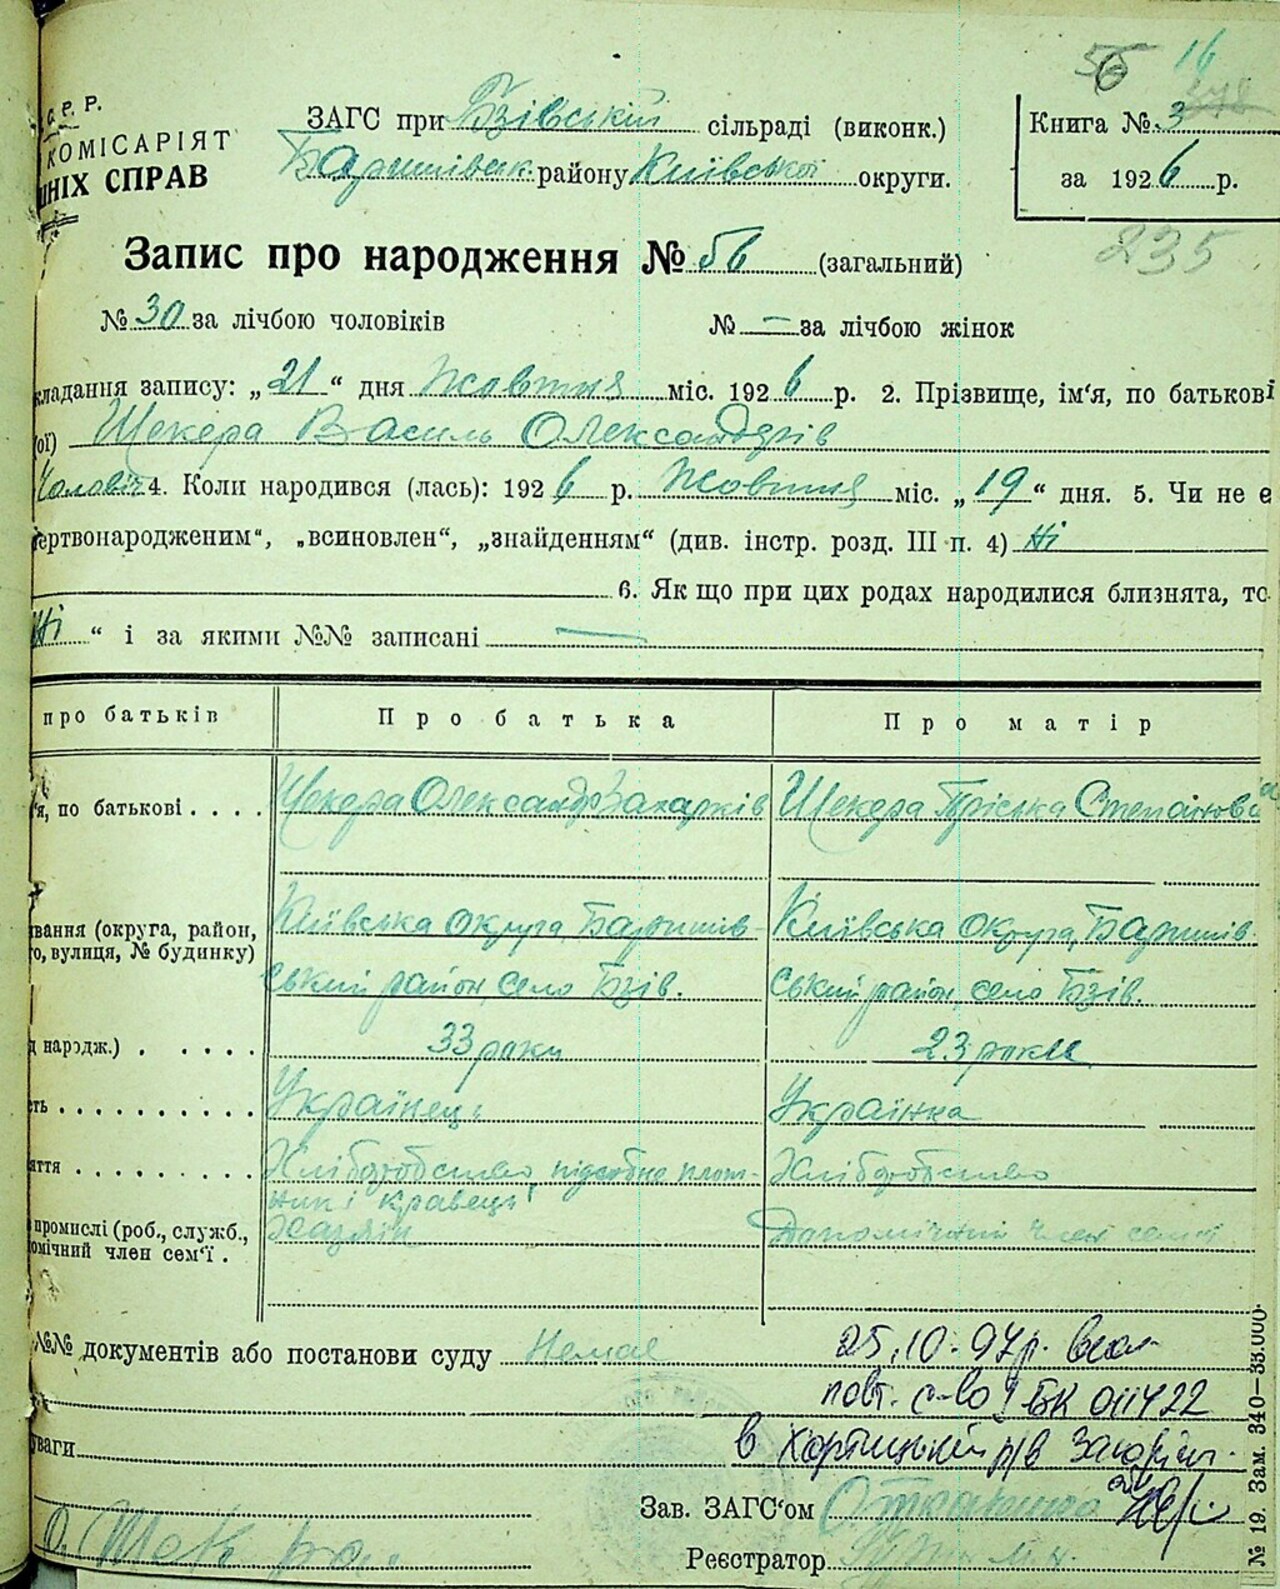 56 16
С. Р. Р.
КОМІСАРІЯТ
ШНІХ СПРАВ
ЗАГС при Бзівській сільраді (виконк.)
Баришівськ. району Київської округи.
Книга № 3
за 1926 р.
235
Запис про народження № 56 (загальний)
№ 30 за лічбою чоловіків № — за лічбою жінок
кладання запису: „21“ дня Жовтня міс. 1926 р. 2. Прізвище, ім'я, по батькові
(ої) Шекера Василь Олександрів
Чоловіч 4. Коли народився (лась): 1926 р. Жовтня міс. „19“ дня. 5. Чи не є
ертвонародженим“, „всиновлен“, „знайденням“ (див. інстр. розд. III п. 4) Ні
6. Як що при цих родах народилися близнята, то
Ні “ і за якими №№ записані —
про батьків Про батька Про матір
'я, по батькові . . . . Шекера Олександр Захарків Шекера Пріська Степанова
вання (округа, район, Київська округа, Баришів- Київська округа, Баришів-
о, вулиця, № будинку) ський район, село Бзів. ський район, село Бзів.
д народж.) . . . . . 33 роки 23 роки
ть . . . . . . . . . . Українець Українка
яття . . . . . . . . Хліборобство, підсобно плот- Хліборобство
ник і кравець
промислі (роб., служб., Хазяін Допомічний член семії
омічний член сем'ї .
№№ документів або постанови суду Немає
25.10.97р. вид
повт. с-во I БК 011422
уваги в Хортицький р/в Запоріж.
Зав. ЗАГС'ом
О. Шекера
Реєстратор
№ 19. Зам. 340—35.000.